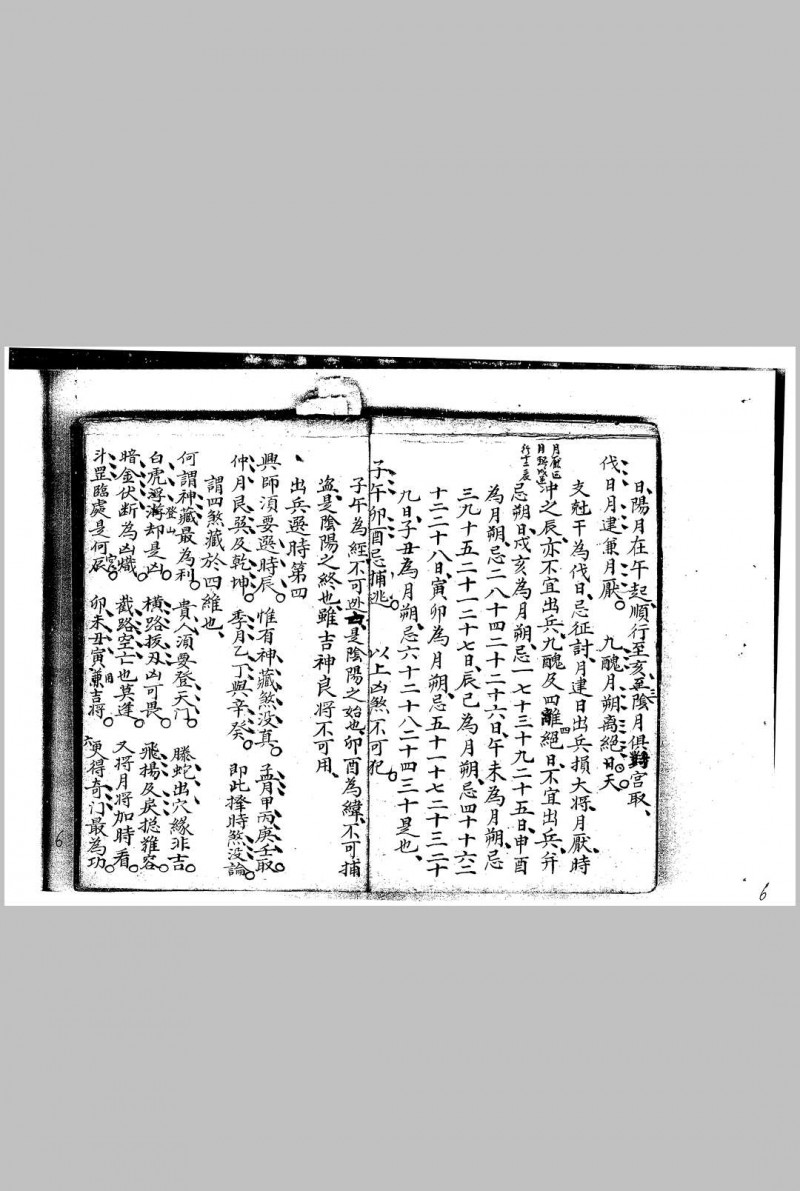 日、陽月在午起、順行至亥、至陰月俱對宮取、
伐日月建兼月厭。 九醜月朔离絕日。天
支尅干為伐日、忌征討、月建日出兵損大将、月厭、時
冲之辰、亦不宜出兵、九醜及四離四絕日不宜出兵、弁
忌朔日、戍亥為月朔、忌一七十三十九二十五日、申酉
為月朔、忌二八十四二十二十六日、午未為月朔、忌
三九十五二十一二十七日、辰巳為月朔、忌四十十六二
十二二十八日、寅卯為月朔、忌五十一十七二十三二十
九日、子丑為月朔、忌六十二十八二十四三十是也、
子午卯酉忌捕逃。 以上凶煞不可犯。
子午為經、不可逃亡、是陰陽之始也、卯酉為緯、不可捕
盗、是陰陽之終也、雖吉神良將不可用、
出兵選時第四
興師須要選時辰、 惟有神藏煞没真。 孟月甲丙庚壬取、
仲月艮巽及乾坤。 季月乙丁與辛癸。 即此擇時煞没論。
謂四煞藏於四維也、
何謂神藏最為利。 貴人須要登天门、 螣蛇出穴緣非吉
白虎登山却是凶。 橫路拔刃凶可畏。 飛揚及戾摠難容
暗金伏断為凶熾。 截路空亡也莫逢。 又将月將加時看
斗罡臨處是何辰。 卯未丑寅兼吉将。 更得奇门最為功。
6
6